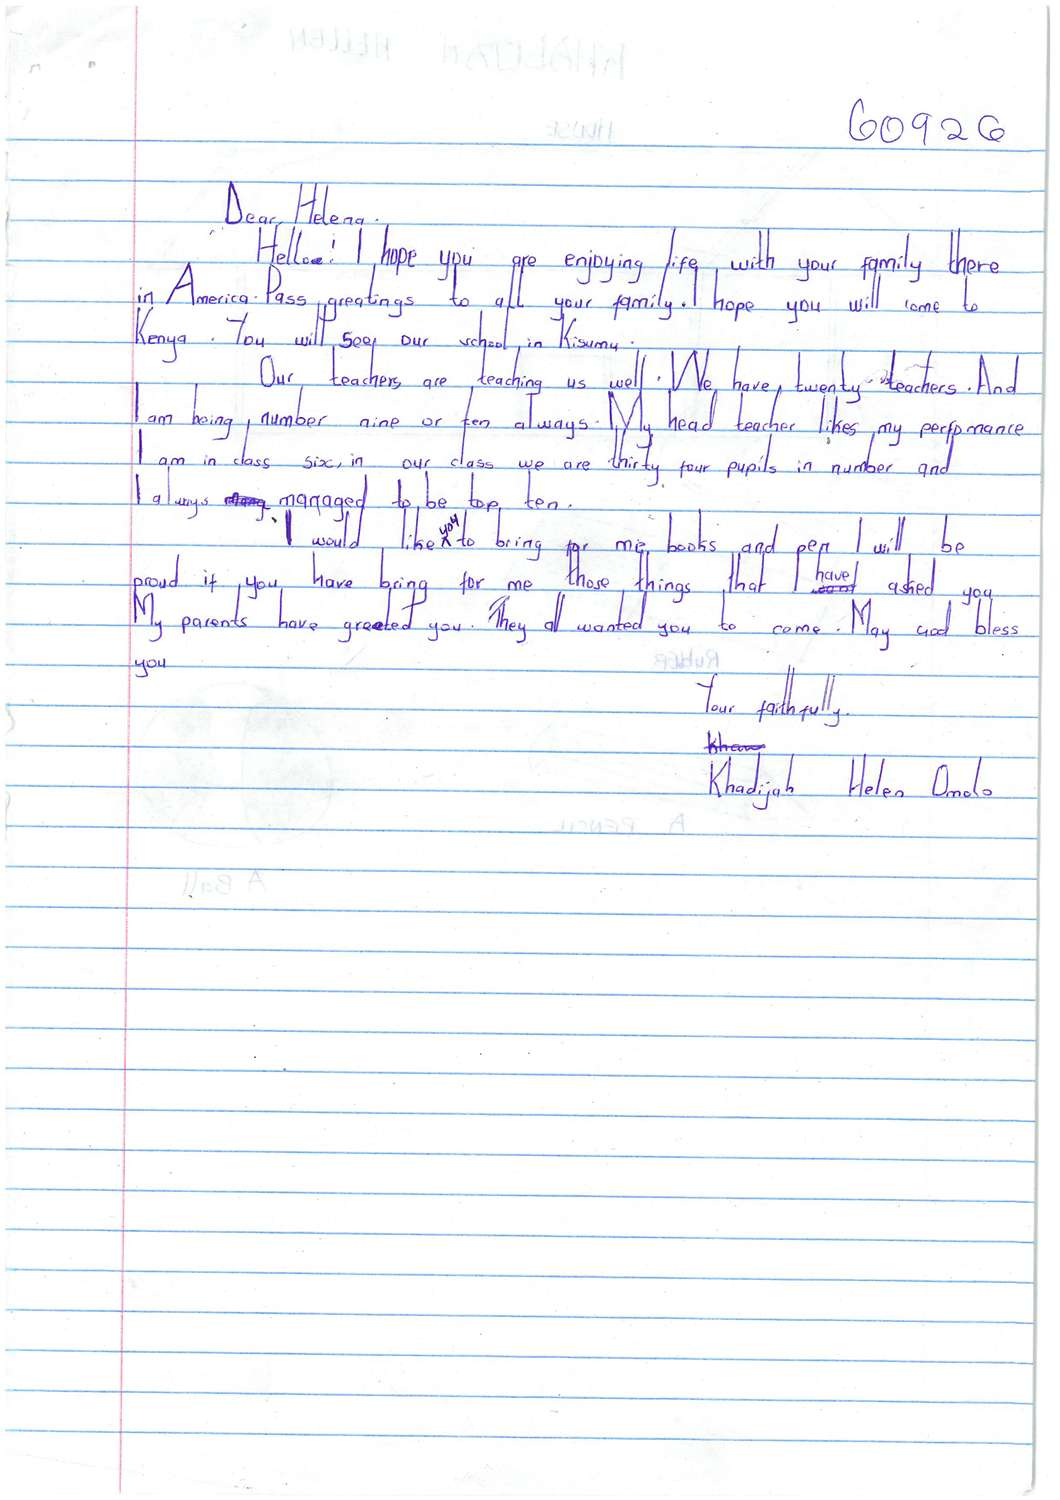 60926
Dear, Helena.
Hello! I hope you are enjoying life, with your family there
in America. Pass greatings to all your family. I hope you will come to
Kenya. You will see our school in Kisumu.
Our teachers are teaching us well. We have twenty teachers. And
I am being number nine or ten always. My head teacher likes my perfomance
I am in class six, in our class we are thirty four pupils in number and
I always managed to be top ten.
I would like you to bring for me books and pen I will be
proud if you have bring for me those things that I have asked you
My parents have greeted you. They all wanted you to come. May God bless
you
RubbER
Your faithfully.
Khadijah Helen Omolo
A PENCIL
A Ball